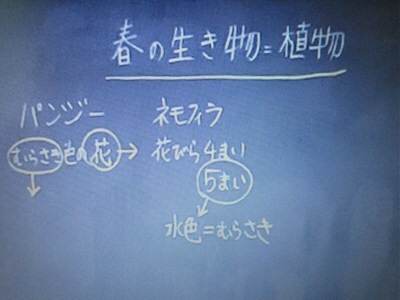 春の生き物=植物
パンジー
むらさき色の花→
↓
ネモフィラ
花びら4まい
5まい
水色=むらさき